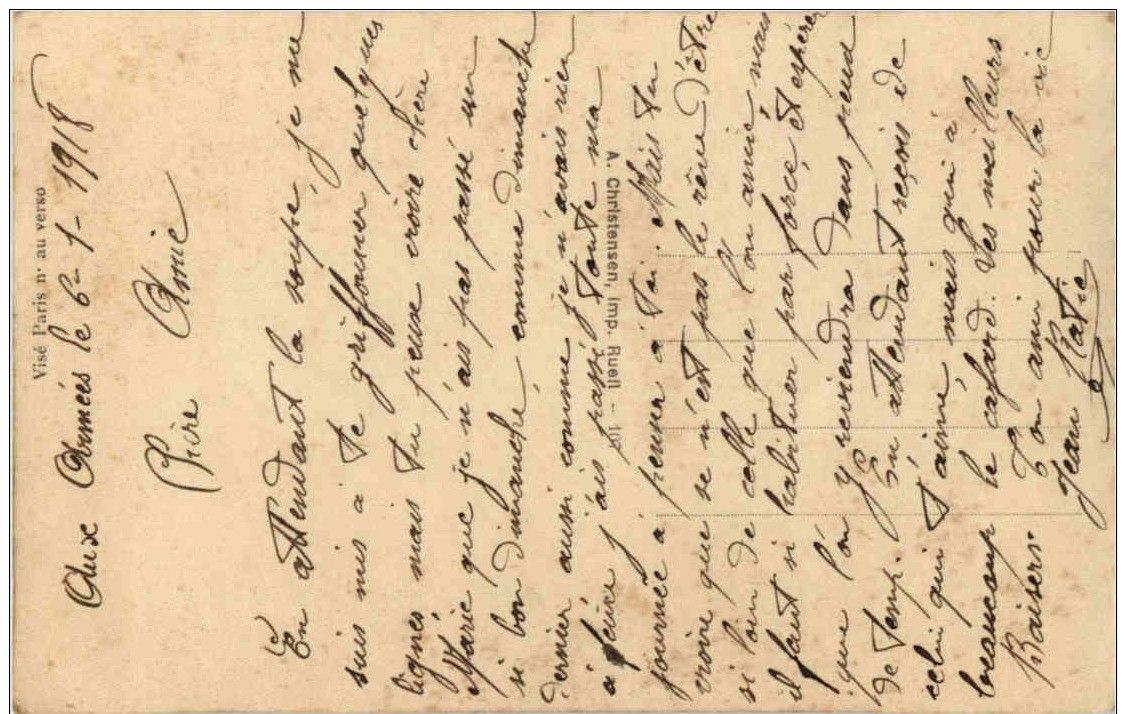 Visé Paris n° au verso
Aux Armées le 6-1-1918
Chère Amie
En attendant la soupe, je me
suis mis à te griffoner quelques
lignes mais tu peux croire chère
Marie que je n'ais pas passé un
si bon dimanche, comme dimanche
dernier aussi comme je n'avais rien
à faire j'ais passé toute ma
journée à penser à toi. Mais tu
vois que se n'est pas le rêve d'être
si loin de celle que l'on aime, mais
il faut si habituer par force, et espérer
que l'on y reviendra dans peud
de temp. En attendant reçois de
celui qui t'aime, mais qui à
beaucoup le cafard. Les meilleurs
Baisers. Ton ami pour la vie
Jean
A. Christensen, Imp. Rueil